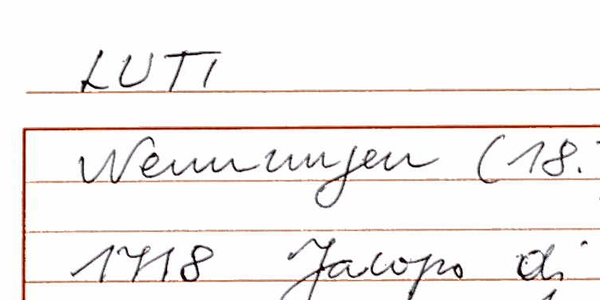 LUTI
Nennungen (18.
1718 Jacopo di